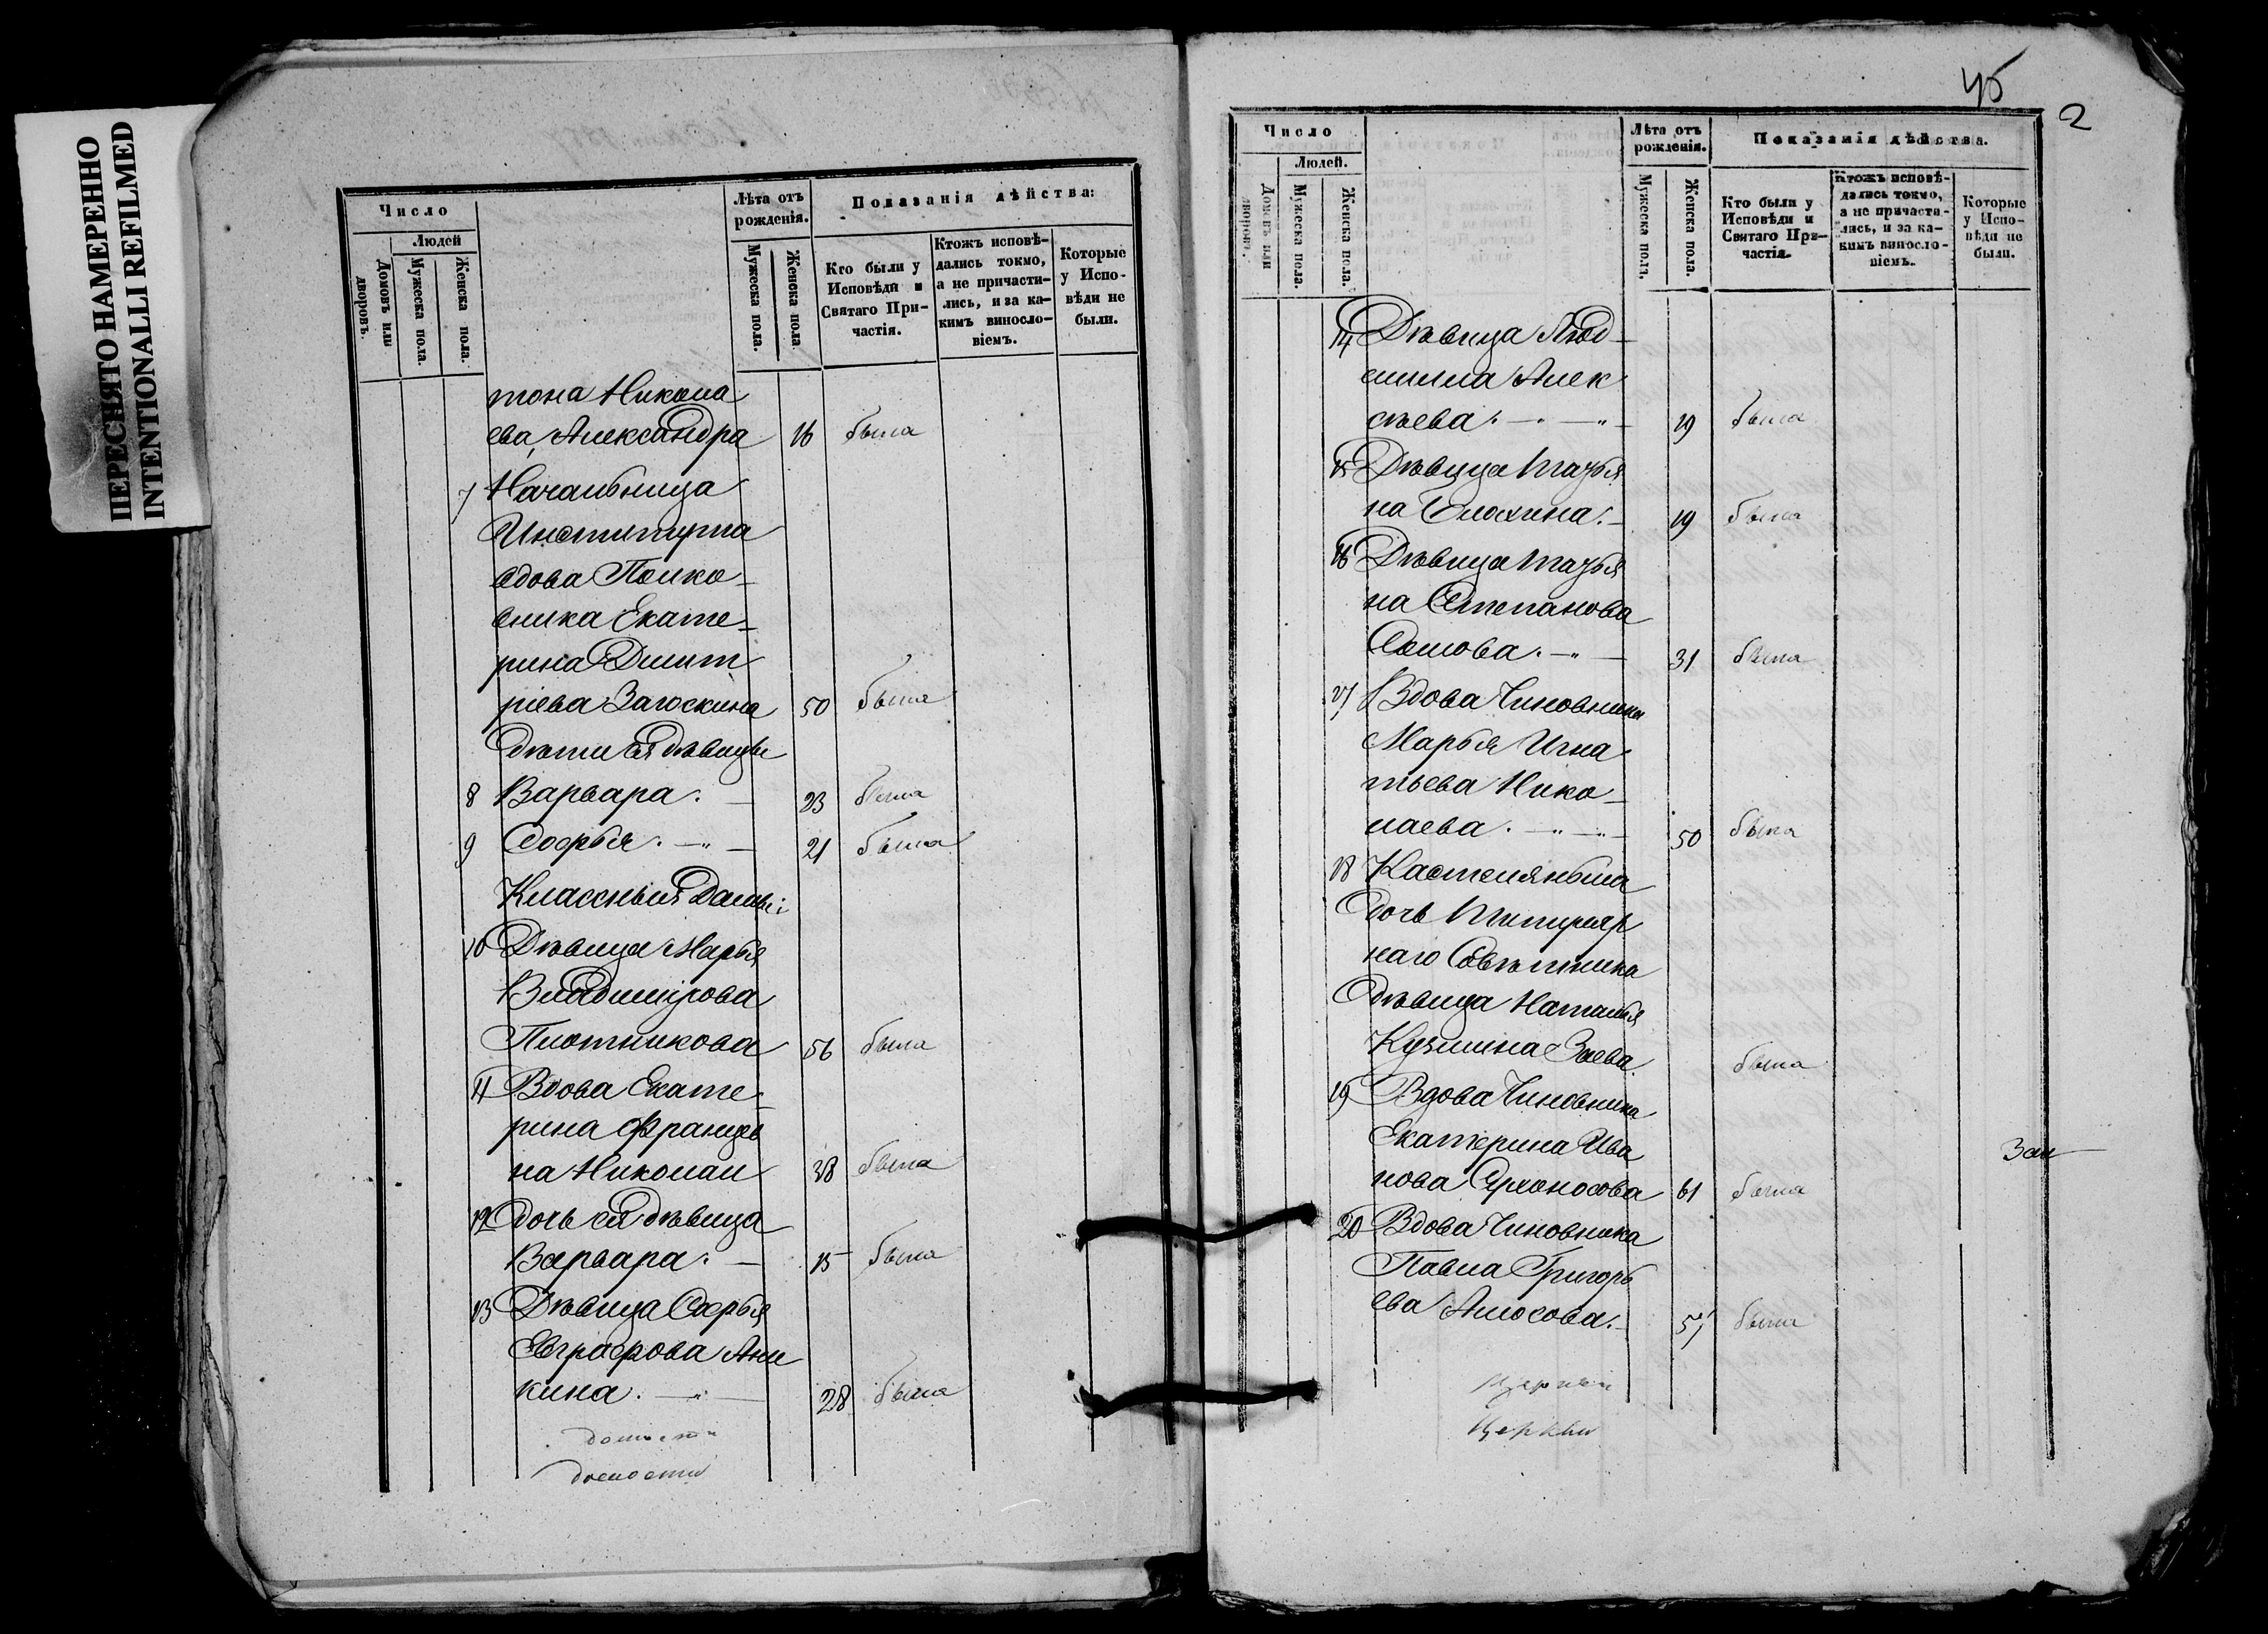 ПЕРЕСНЯТО НАМЕРЕННО
INTENTIONALLI REFILMED
Число
Людей
Домовъ или дворовъ.
Мужеска пола.
Женска пола.
Лѣта отъ рожденія.
Мужеска пола.
Женска пола.
Показанія дѣйства:
Кто были у Исповѣди и Святаго Причастія.
Ктожъ исповѣдались токмо, а не причастились, и за какимъ винословіемъ.
Которые у Исповѣди не были.
тона Никола
ева, Александра 16 была
7 Начальница
Института
вдова Полко-
вника Екате-
рина Дмит
ріева Загоскина 50 была
дѣти ея дѣвицы
8 Варвара. — 23 была
9 Софья. —„— 21 была
Классныя Дамы:
10 Дѣвица Марья
Владимірова
Плотникова 56 была
11 Вдова Екате-
рина Францов
на Николаи 38 была
12 дочь ея дѣвица
Варвара. — 15 была
13 Дѣвица Софья
Евграфова Ани
кина. —„— 28 была
45
2
Число
Людей.
Домовъ или дворовъ.
Мужеска пола.
Женска пола.
Лѣта отъ рожденія.
Мужеска пола.
Женска пола.
Показанія дѣйства.
Кто были у Исповѣди и Святаго Причастія.
Ктожъ исповѣдались токмо, а не причастились, и за какимъ винословіемъ.
Которые у Исповѣди не были.
14 Дѣвица Люд-
милла Алек
сѣева. —„— 19 была
15 Дѣвица Татья
на Блохина. — 19 была
16 Дѣвица Татья
на Степанова
Сомова. —„— 31 была
17 Вдова Чиновника
Марья Игна
тьева Нико-
лаева. —„— 50 была
18 Кастелянша
дочь Титуляр
наго Совѣтника
дѣвица Наталья
Кузмина Заева. была
19 Вдова Чиновника
Екатерина Ива
нова Сухоносова 61 была
20 Вдова Чиновника
Павла Григорь
ева Амосова. — 57 была
Церкви